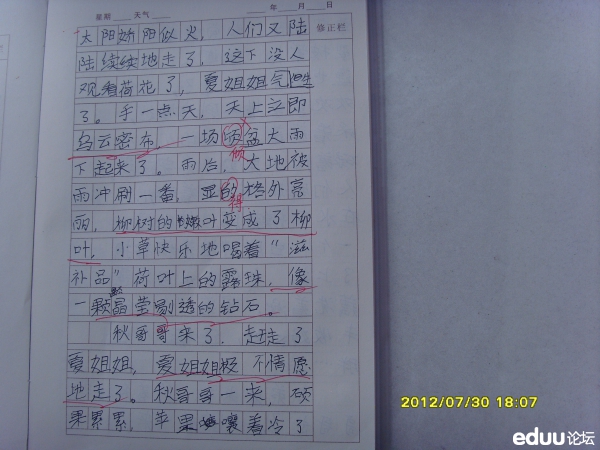 星期 天气 年 月 日
修正栏
太阳娇阳似火，人们又陆
陆续续地走了，这下没人
观看荷花了，夏姐姐气坏
了。手一点天，天上立即
乌云密布，一场倾盆大雨
倾
下起来了。雨后，大地被
雨冲刷一番，显的格外亮
得
丽，柳树的嫩叶变成了柳
叶，小草快乐地喝着“滋
补品”荷叶上的露珠，像
一颗晶莹剔透的钻石。
秋哥哥来了，赶走了
夏姐姐，夏姐姐极不情愿
地走了。秋哥哥一来，硕
果累累，苹果嚷着冷了
2012/07/30 18:07
eduu论坛